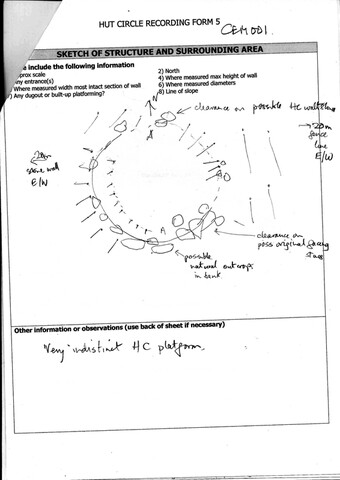 HUT CIRCLE RECORDING FORM 5
CEM001
SKETCH OF STRUCTURE AND SURROUNDING AREA
e include the following information
prox scale
2) North
ny entrance(s)
4) Where measured max height of wall
Where measured width most intact section of wall
6) Where measured diameters
Any dugout or built-up platforming?
8) Line of slope
N
clearance on possible HC
→20m
fence
line
E/W
20m
wall
E/W
A
A
clearance on
poss original facing
possible
natural outcrop
in bank
Other information or observations (use back of sheet if necessary)
"Very" indistinct HC platform.